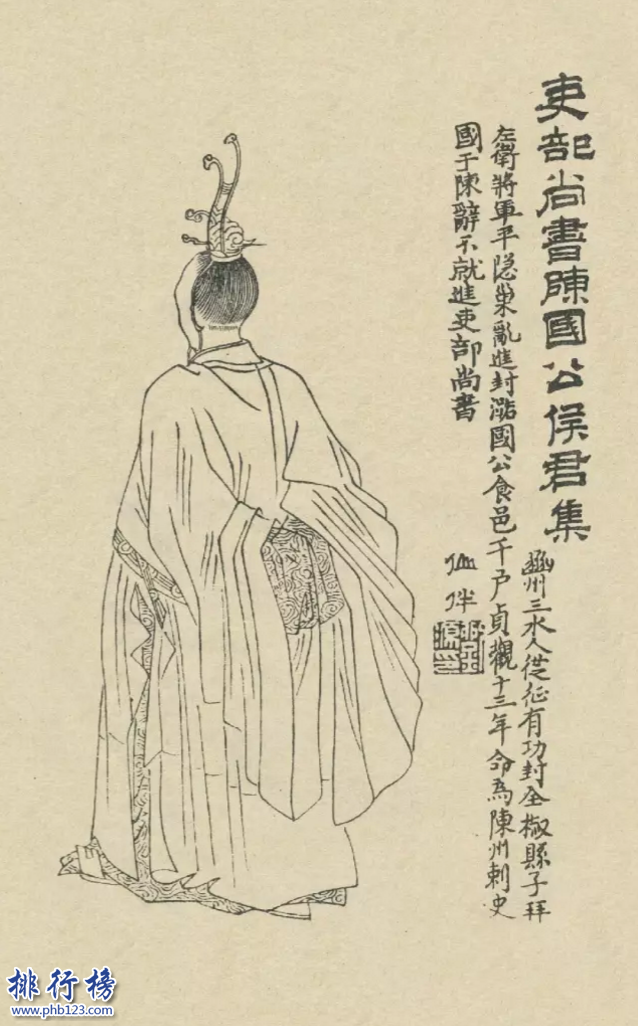 吏部尚書陳國公侯君集
豳州三水人從征有功封全椒縣子拜
左衛將軍平隱巢亂進封潞國公食邑千戶貞觀十三年命為陳州刺史
國于陳辭不就進吏部尚書
仙伴
排行榜
www.phb123.com